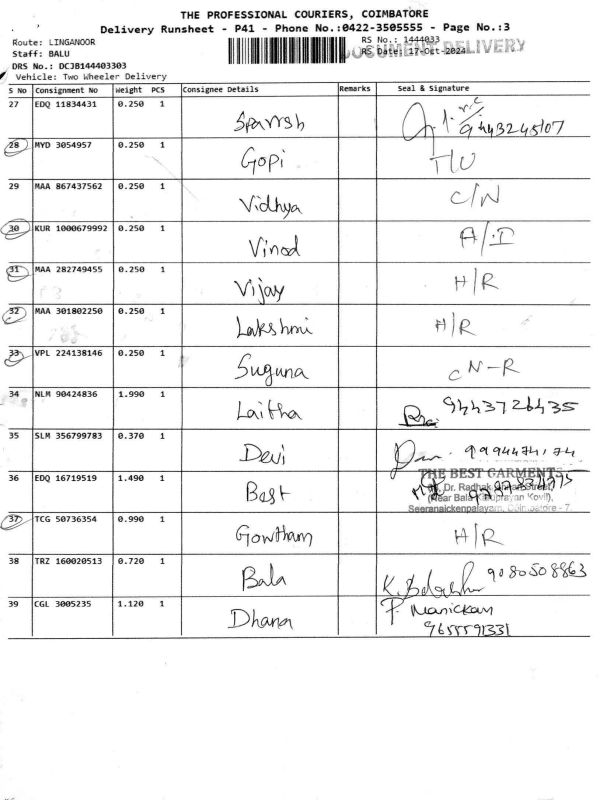 THE PROFESSIONAL COURIERS, COIMBATORE
Delivery Runsheet - P41 - Phone No.:0422-3505555 - Page No.:3
Route: LINGANOOR
RS No.: 1444033
DOCUMENT DELIVERY
Staff: BALU
RS Date: 17-Oct-2024
DRS No.: DCJB144403303
Vehicle: Two Wheeler Delivery
S No Consignment No Weight PCS Consignee Details Remarks Seal & Signature
27 EDQ 11834431 0.250 1 Sparrsh 9443245107
28 MYD 3054957 0.250 1 Gopi T/U
29 MAA 867437562 0.250 1 Vidhya C/N
30 KUR 1000679992 0.250 1 Vinod A/I
31 MAA 282749455 0.250 1 Vijay H/R
32 MAA 301802250 0.250 1 Lakshmi H/R
33 VPL 224138146 0.250 1 Suguna CN-R
34 NLM 90424836 1.990 1 Laitha 9443726435
35 SLM 356799783 0.370 1 Devi 9994474174
36 EDQ 16719519 1.490 1 Best
THE BEST GARMENTS
Seeranaickenpalayam, Coimbatore - 7.
37 TCG 50736354 0.990 1 Gowtham H/R
38 TRZ 160020513 0.720 1 Bala 9080508863
39 CGL 3005235 1.120 1 Dhana P. Manickam
9655591331